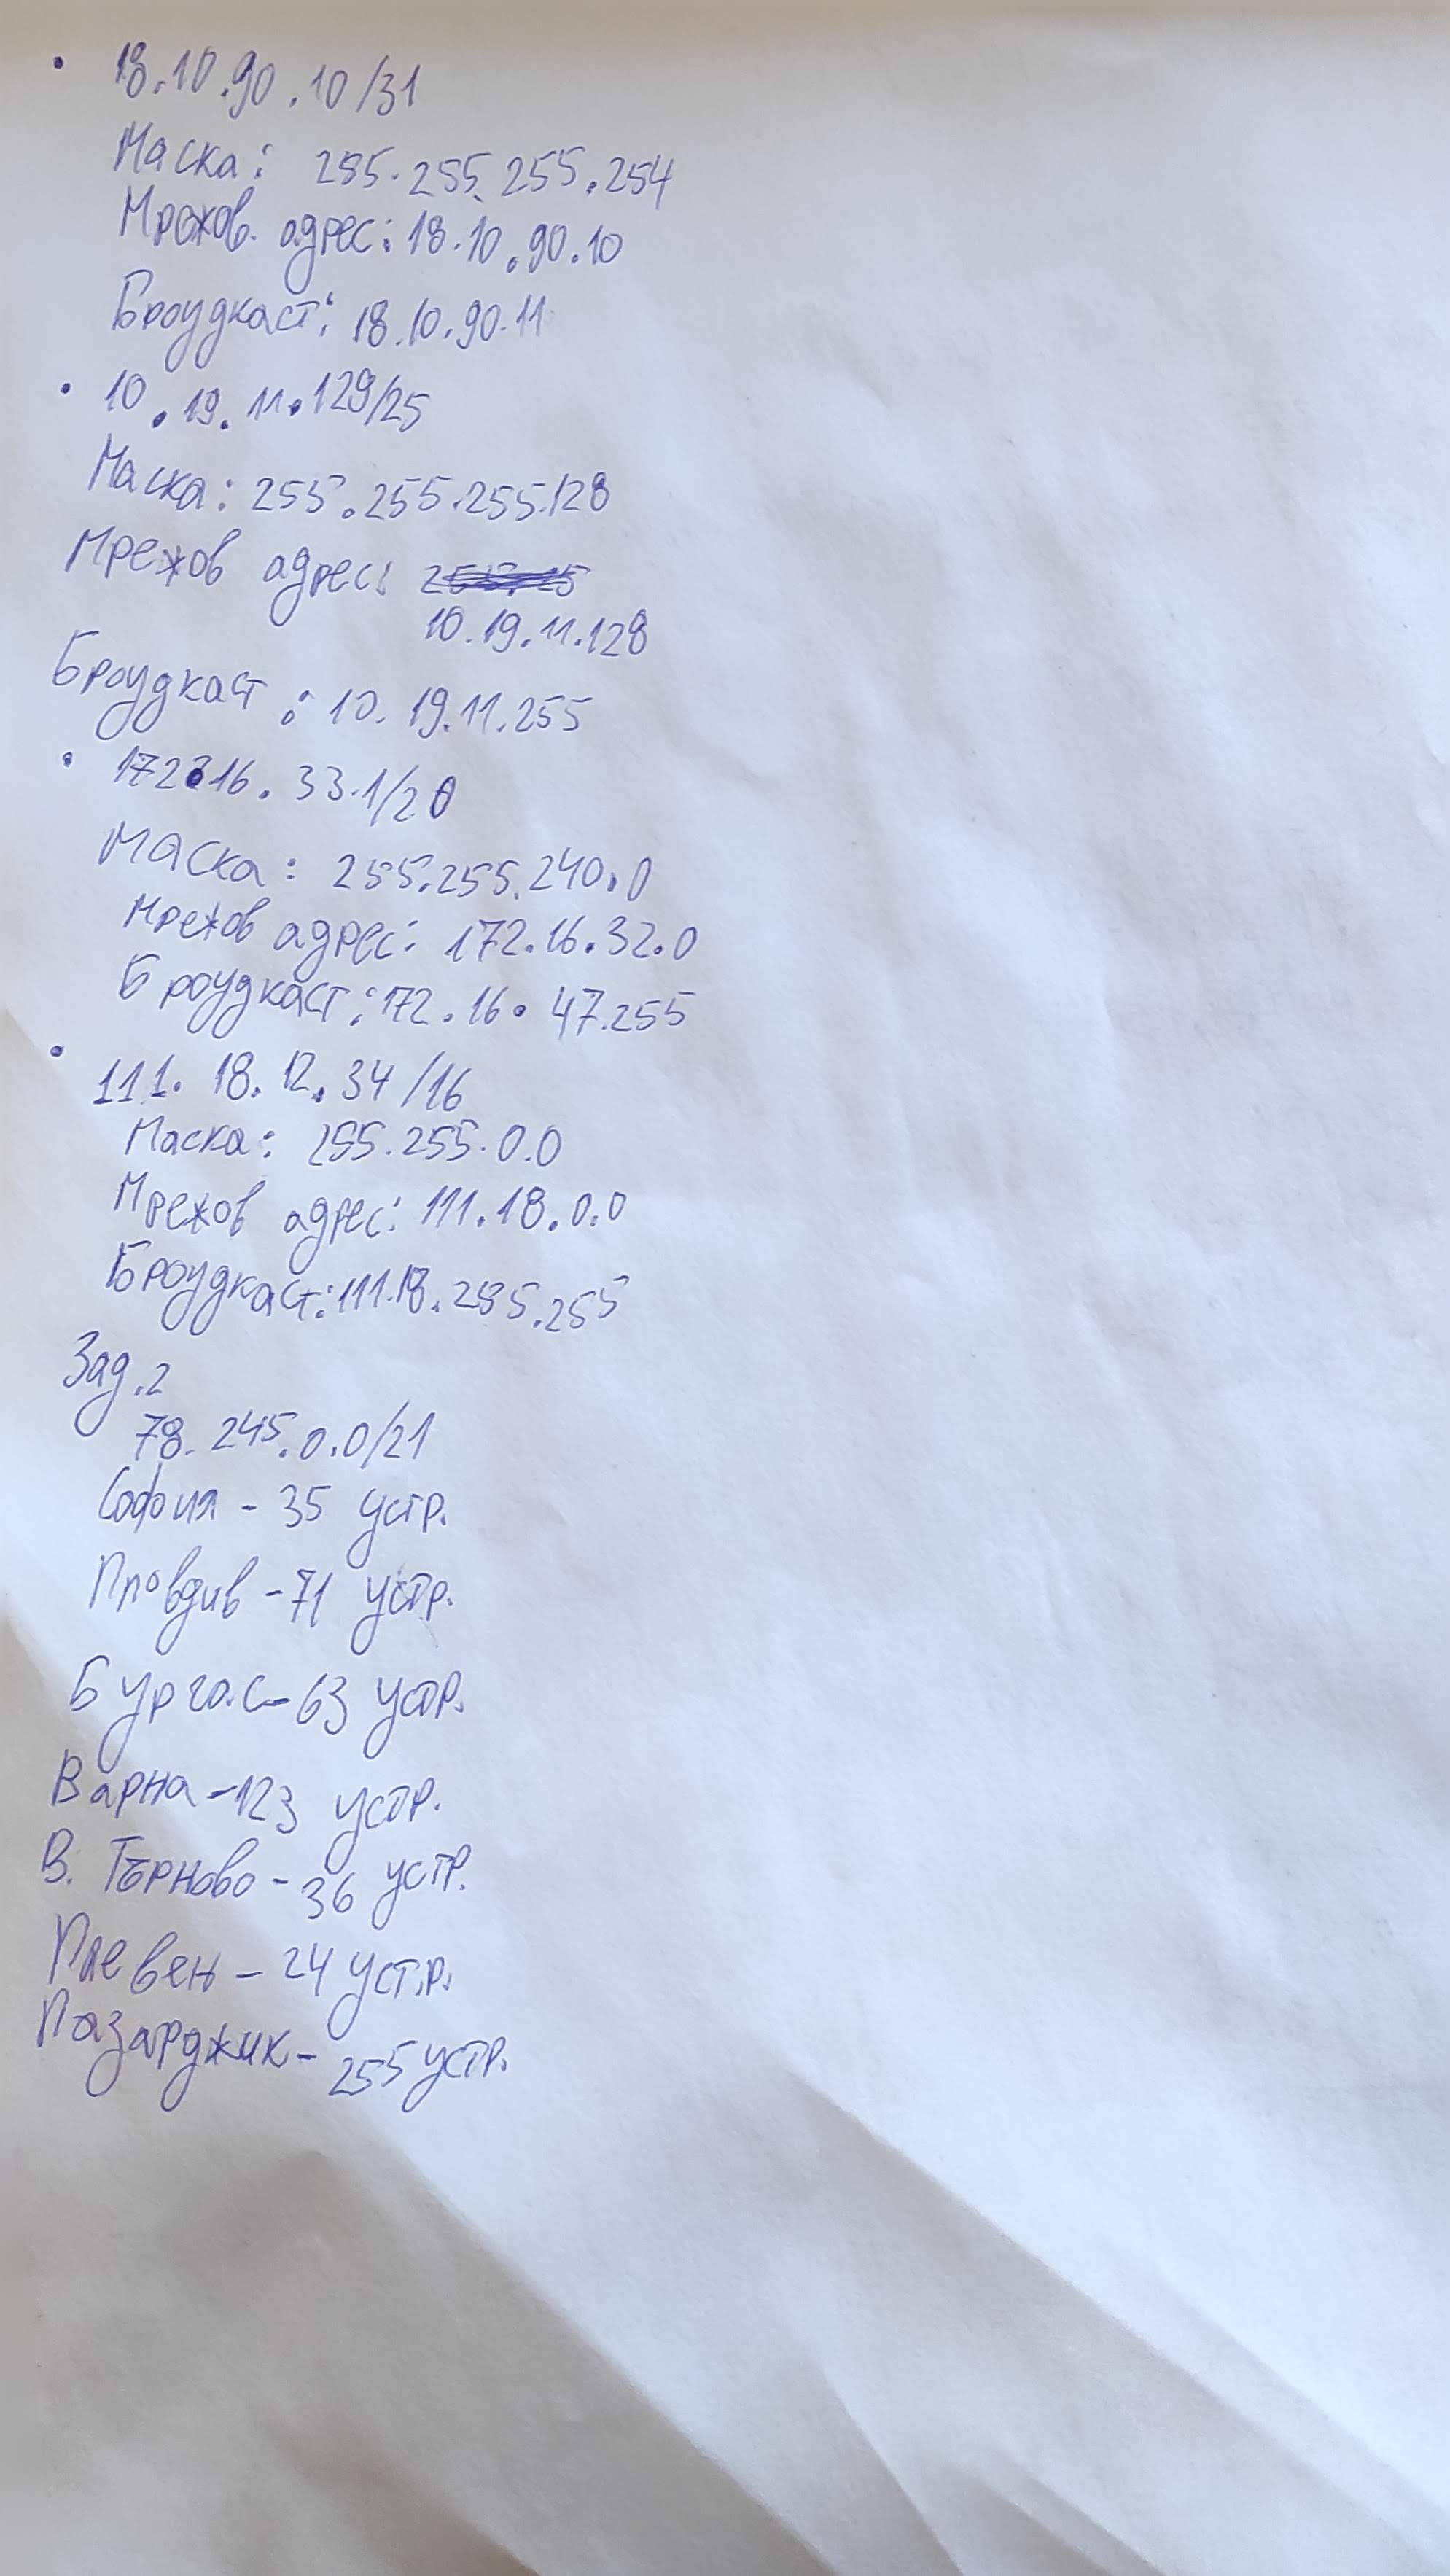 • 18.10.90.10/31
Маска: 255.255.255.254
Мрежов. адрес: 18.10.90.10
Броудкаст: 18.10.90.11
• 10.19.11.129/25
Маска: 255.255.255.128
Мрежов адрес:
10.19.11.128
Броудкаст: 10.19.11.255
• 172.16.33.1/20
Маска: 255.255.240.0
Мрежов адрес: 172.16.32.0
Броудкаст: 172.16.47.255
• 111.18.12.34/16
Маска: 255.255.0.0
Мрежов адрес: 111.18.0.0
Броудкаст: 111.18.255.255
Зад.2
78.245.0.0/21
София - 35 устр.
Пловдив - 71 устр.
Бургас - 63 устр.
Варна - 123 устр.
В. Търново - 36 устр.
Плевен - 24 устр.
Пазарджик - 255 устр.